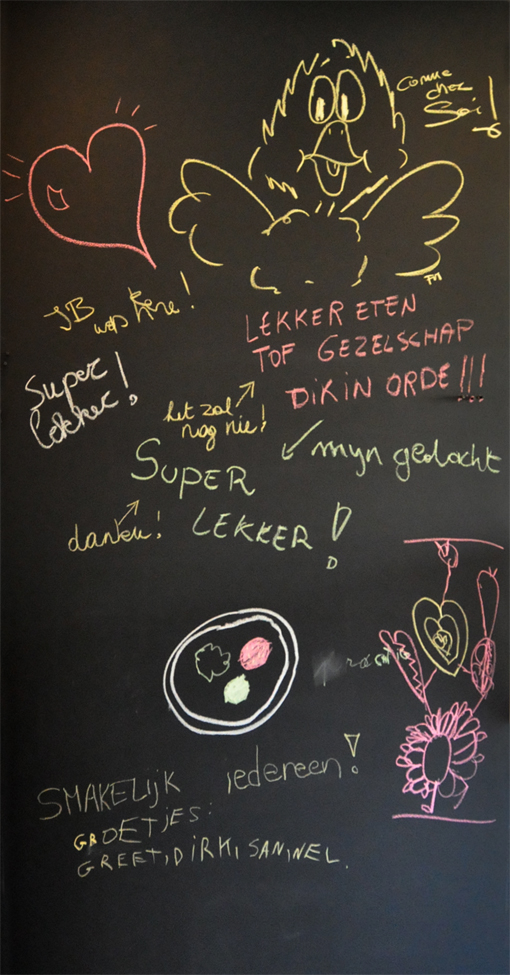 Comme
chez
Soi!
JB was here!
LEKKER ETEN
TOF GEZELSCHAP
DIK IN ORDE!!!
Super
lekker!
het zal
nog nie!
mijn gedacht
SUPER
LEKKER!
danku!
SMAKELIJK iedereen!
GROETJES:
GREET, DIRK, SAN, NEL.